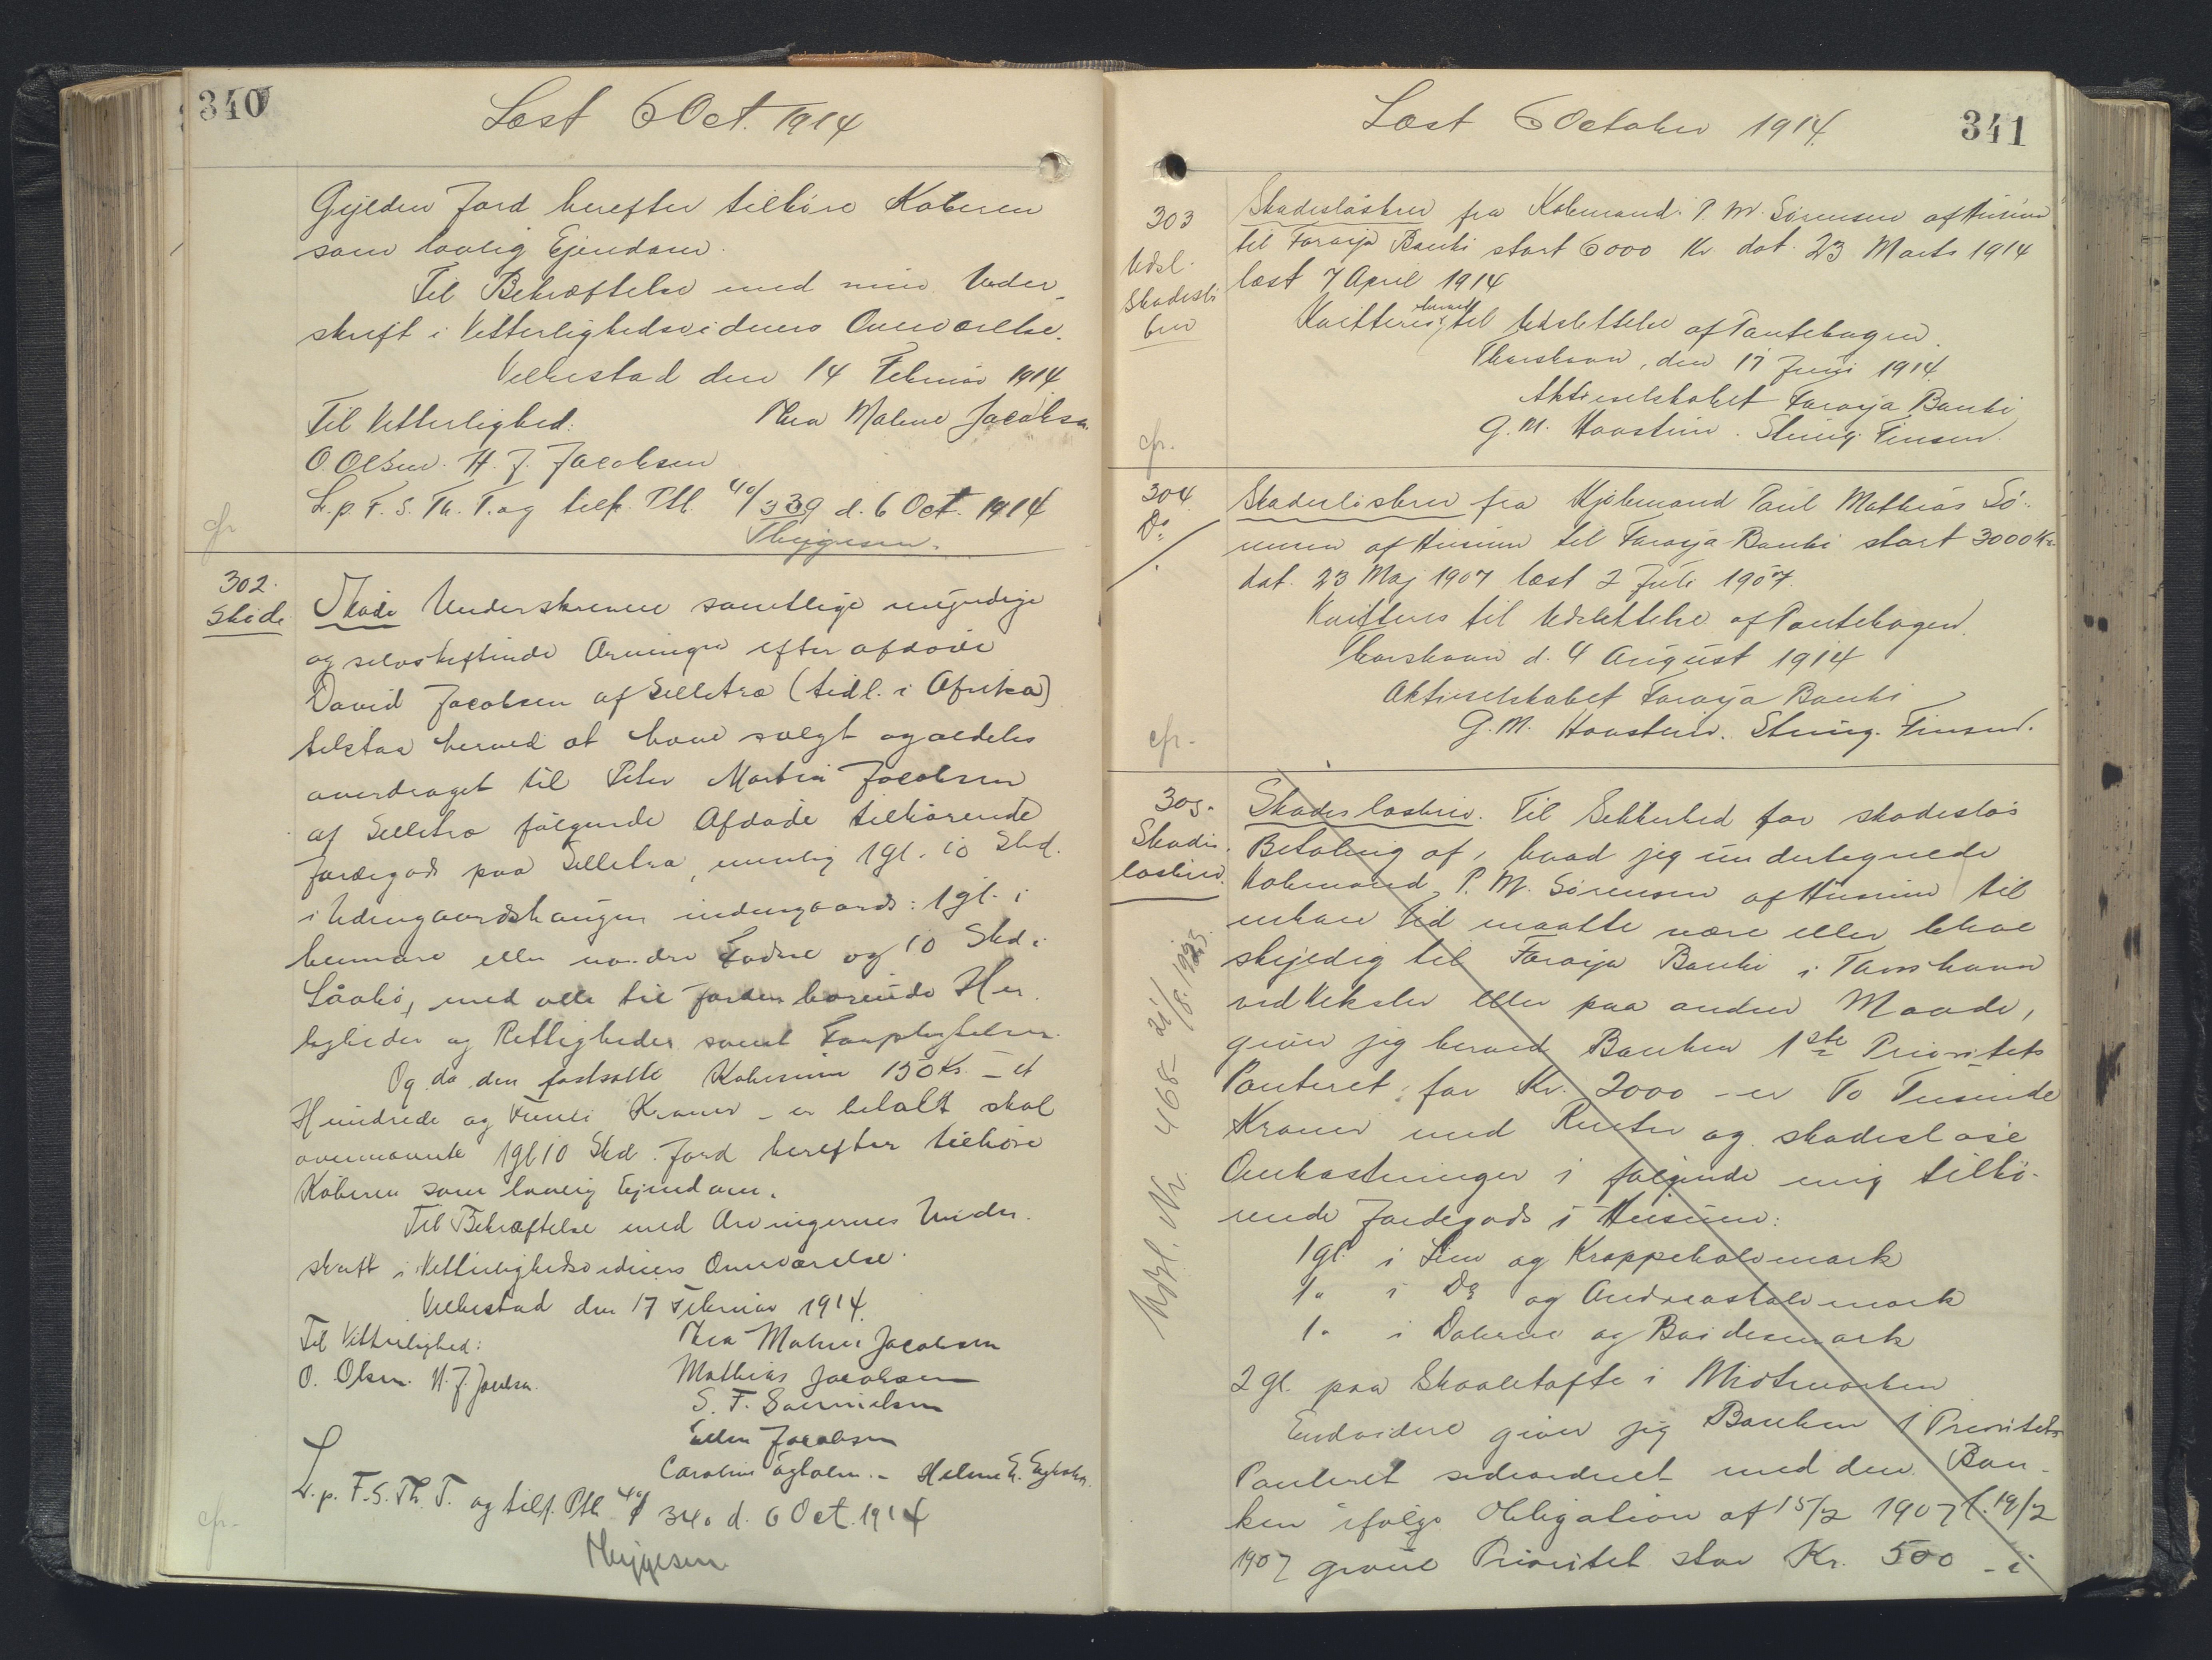 340
Læst 6 Oct. 1914
Gylden Jord herefter tilhøre Køberen
som lovlig Ejendom.
Til Bekræftelse med min Under-
skrift i Vitterlighedsvidners Overværelse.
Velbestad den 14 Februar 1914
Til Vitterlighed: Thea Malene Jacobsen
O. Olsen. H. J. Jacobsen
L. p. F. S. Th. T. og tilf. Ptl. 40/339 d. 6 Oct. 1914
Thygesen.
cfr
302.
Skøde
Skøde Underskrevne samtlige myndige
og selvskiftende Arvinger efter afdøde
David Jacobsen af Selletræ (tidl. i Afrika)
tilstaa herved at have solgt og aldeles
overdraget til Peter Martin Jacobsen
af Selletræ følgende Afdøde tilhørende
Jordegods paa Selletræ, nemlig 1 gl. 10 Skd.
i Udengaardshaugen indengaards: 1 gl. i
hennare eller nordre Endne og 10 Skd i
Låabø, med alle til Jorden hørende Her-
ligheder og Rettigheder samt Forpligtelser.
Og da den fastsatte Købesum 150 Kr. - et
Hundrede og Femti Kroner - er betalt skal
ovennævnte 1 gl 10 Skd. Jord herefter tilhøre
Køberen som lovlig Ejendom.
Til Bekræftelse med Arvingernes Under-
skrift i Vitterlighedsvidners Overværelse.
Velbestad den 17 Februar 1914.
Til Vitterlighed: Thea Malene Jacobsen
O. Olsen. H. J. Jacobsen. Mathias Jacobsen
S. F. Samuelsen
Ellen Jacobsen
Caroline - Helene E.
L. p. F. S. Th. T. og tilf. Ptl. 40/340 d. 6 Oct. 1914
Thygesen
cfr.
Læst 6 October 1914.
341
303
Udsl.
Skadesls
brev
Skadesløsbrev fra Købmand P. M. Sørensen af Husum
til Føroya Banki stort 6000 Kr dat. 23 Marts 1914
læst 7 April 1914
Kvitteres herved til Udslettelse af Pantebogen.
Thorshavn, den 17 Juni 1914.
Aktieselskabet Føroya Banki
G. M. Haastein. Steing. Finsen.
cfr.
304.
Do.
Skadesløsbrev fra Kjøbmand Paul Mathias Sø-
rensen af Husum til Føroya Banki stort 3000 Kr
dat. 23 Maj 1907 læst 2 Juli 1907.
Kvitteres til Udslettelse af Pantebogen.
Thorshavn d. 4 August 1914
Aktieselskabet Føroya Banki
G. M. Haastein. Steing. Finsen.
cfr.
305.
Skades-
løsbrev.
Udsl. Nr. 468 - 21/8. 1925.
Skadesløsbrev. Til Sikkerhed for skadesløs
Betaling af, hvad jeg undertegnede
Købmand, P. M. Sørensen af Husum til
enhver Tid maatte være eller blive
skyldig til Føroya Banki i Thorshavn
ved Veksler eller paa anden Maade,
giver jeg herved Banken 1ste Prioritets
Panteret for Kr. 2000 - er To Tusinde
Kroner med Renter og skadesløse
Omkostninger i følgende mig tilhø-
rende Jordegods i Husum:
1 gl. i Lim og Kroppeholmmark
1 " i Do og Andreasholmmark
1 " i Dalene og Boidesmark
2 gl. paa Skaaletofte i Midtmarken
Endvidere giver jeg Banken 1 Prioritets
Panteret sideordnet med den Ban-
ken ifølge Obligation af 15/2 1907 l. 19/2
1907 givne Prioritet stor Kr. 500 - i